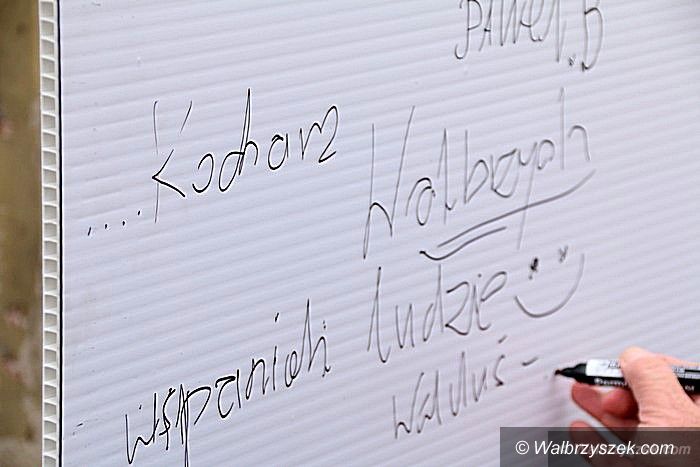 Paweł.B
....Kocham Walbrzych
Wspaniali ludzie
Waluś -
© Walbrzyszek.com